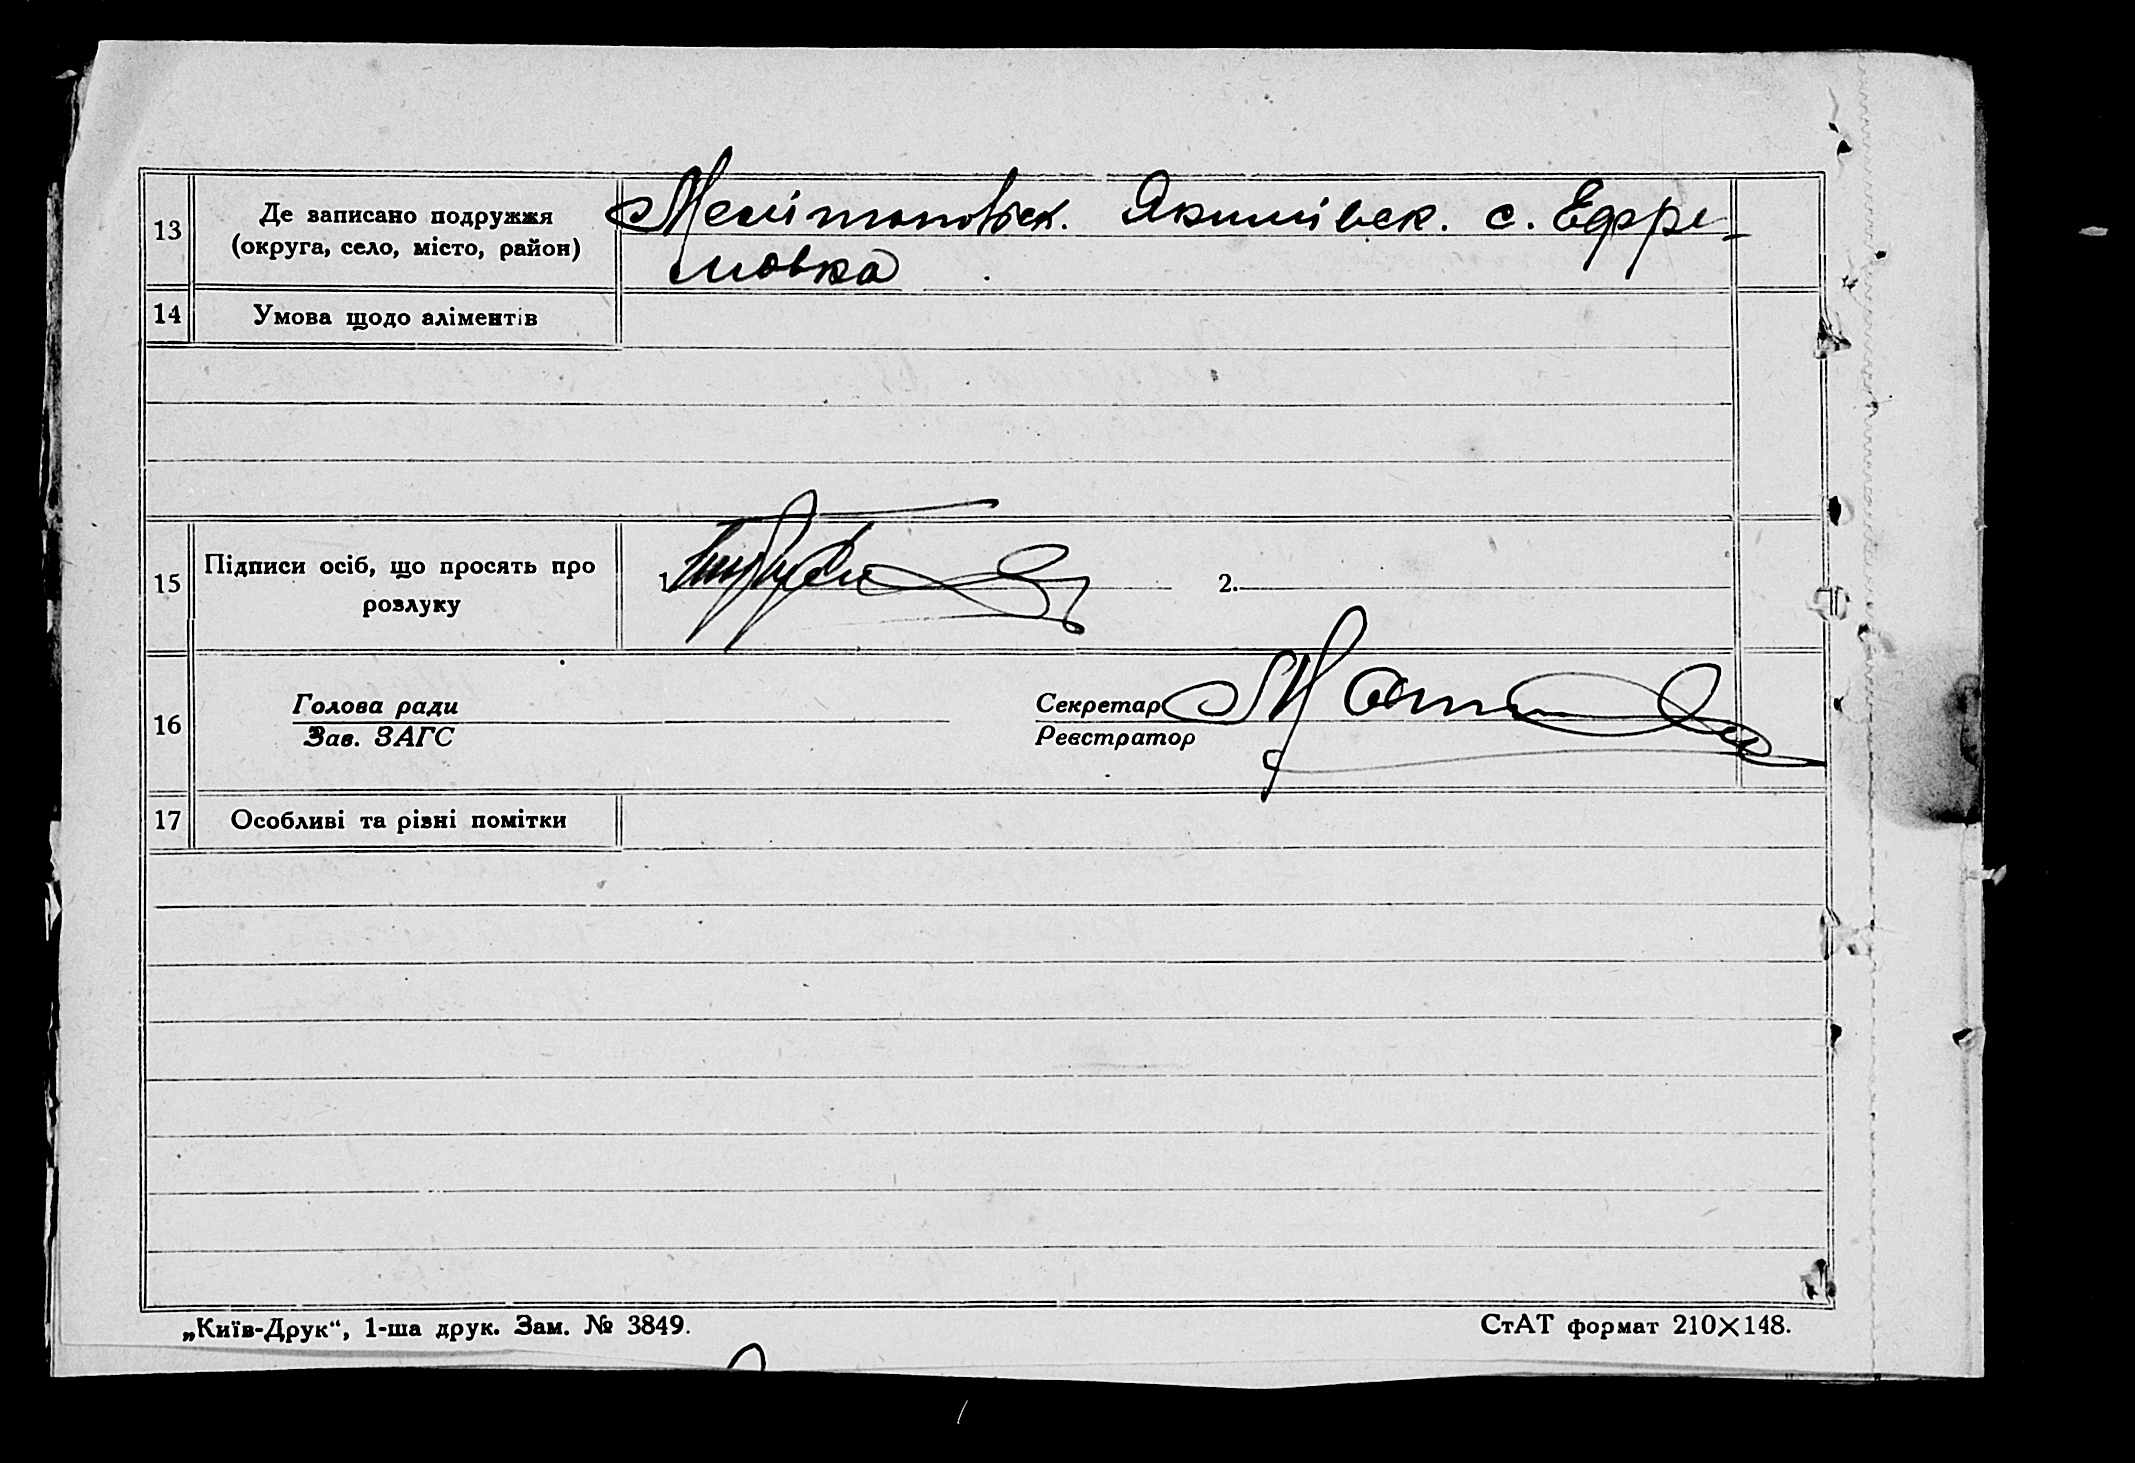 13
Де записано подружжя
(округа, село, місто, район)
Мелітопольск. Якимівск. с. Ефре-
мовка
14
Умова щодо аліментів
15
Підписи осіб, що просять про
розлуку
1.
2.
16
Голова ради
Зав. ЗАГС
Секретар
Реєстратор
17
Особливі та різні помітки
„Київ-Друк“, 1-ша друк. Зам. № 3849.
СтАТ формат 210×148.